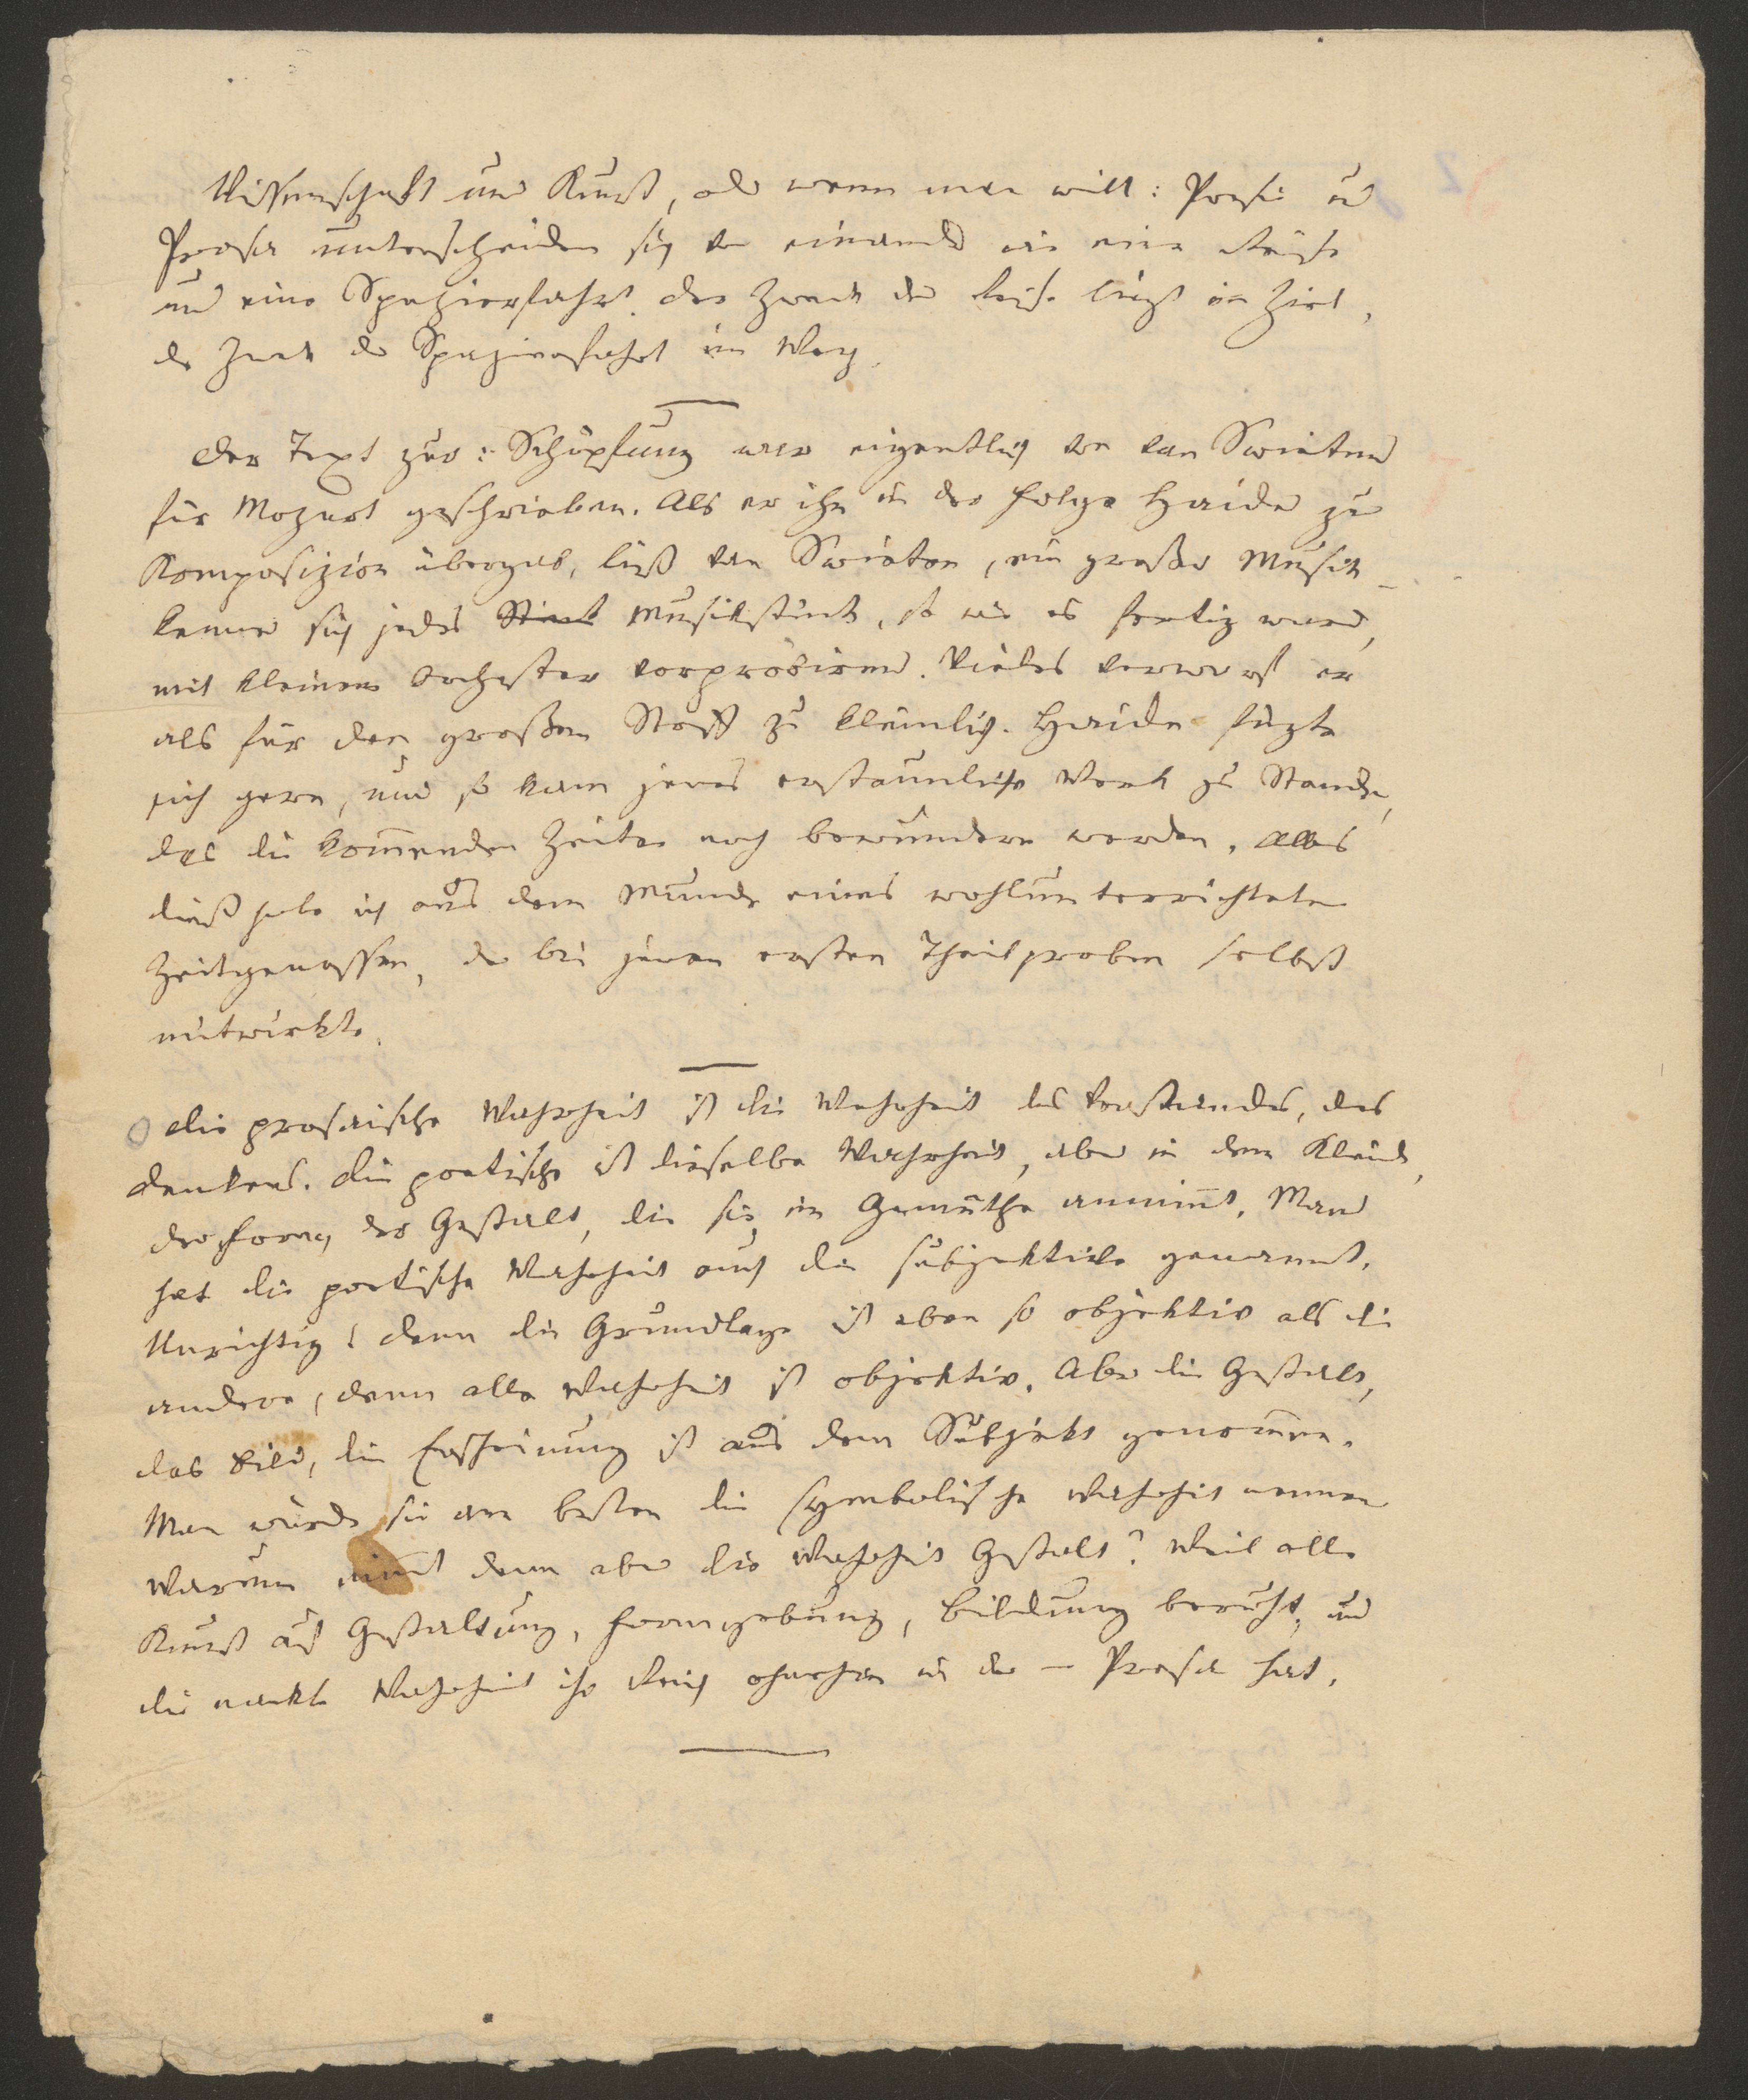 Wissenschaft und Kunst, oder wenn man will: Poesie und
Prosa unterscheiden sich von einander wie eine Reise
und eine Spazierfahrt. Der Zweck der Reise liegt im Ziel,
der Zweck der Spazierfahrt im Weg.
Der Text zur: Schöpfung war eigentlich von van Swieten
für Mozart geschrieben. Als er ihn in der Folge Haiden zur
Komposizion übergab, ließ van Swieten, ein großer Musik-
kenner sich jedes Stück Musikstück, so wie es fertig ward,
mit kleinem Orchester vorprobiren. Vieles verwarf er
als für den großen Stoff zu kleinlich. Haiden fügte
sich gern, und so kam jenes erstaunliche Werk zu Stande,
das die kom̅enden Zeiten noch bewundern werden. Alles
dieß habe ich aus dem Munde eines wohlunterrichteten
Zeitgenossen, der bei jenen ersten Theilproben selbst
mitwirkte.
Die prosaische Wahrheit ist die Wahrheit des Verstandes, des
Denkens. Die poetische ist dieselbe Wahrheit, aber in dem Kleide,
der Form, der Gestalt, die sie im Gemüthe annim̅t. Man
hat die poetische Wahrheit auch die subjektive genannt.
Unrichtig! denn die Grundlage ist eben so objektiv als die
andere, denn alle Wahrheit ist objektiv. Aber die Gestalt,
das Bild, die Erscheinung ist aus dem Subjekt genom̅en.
Man würde sie am besten die symbolische Wahrheit nennen
Warum nim̅t denn aber die Wahrheit Gestalt? Weil alle
Kunst auf Gestaltung, Formgebung, Bildung beruht, und
die nackte Wahrheit ihr Reich ohnehin in der – Prosa hat.